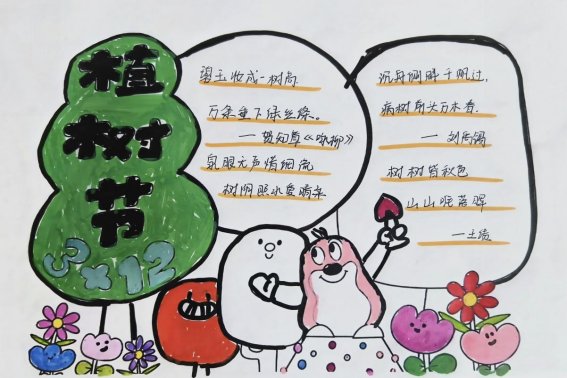 植
树
节
3×12
碧玉妆成一树高
万条垂下绿丝绦。
——贺知章《咏柳》
泉眼无声惜细流
树阴照水爱晴柔
沉舟侧畔千帆过,
病树前头万木春.
——刘禹锡
树树皆秋色
山山唯落晖
——王绩